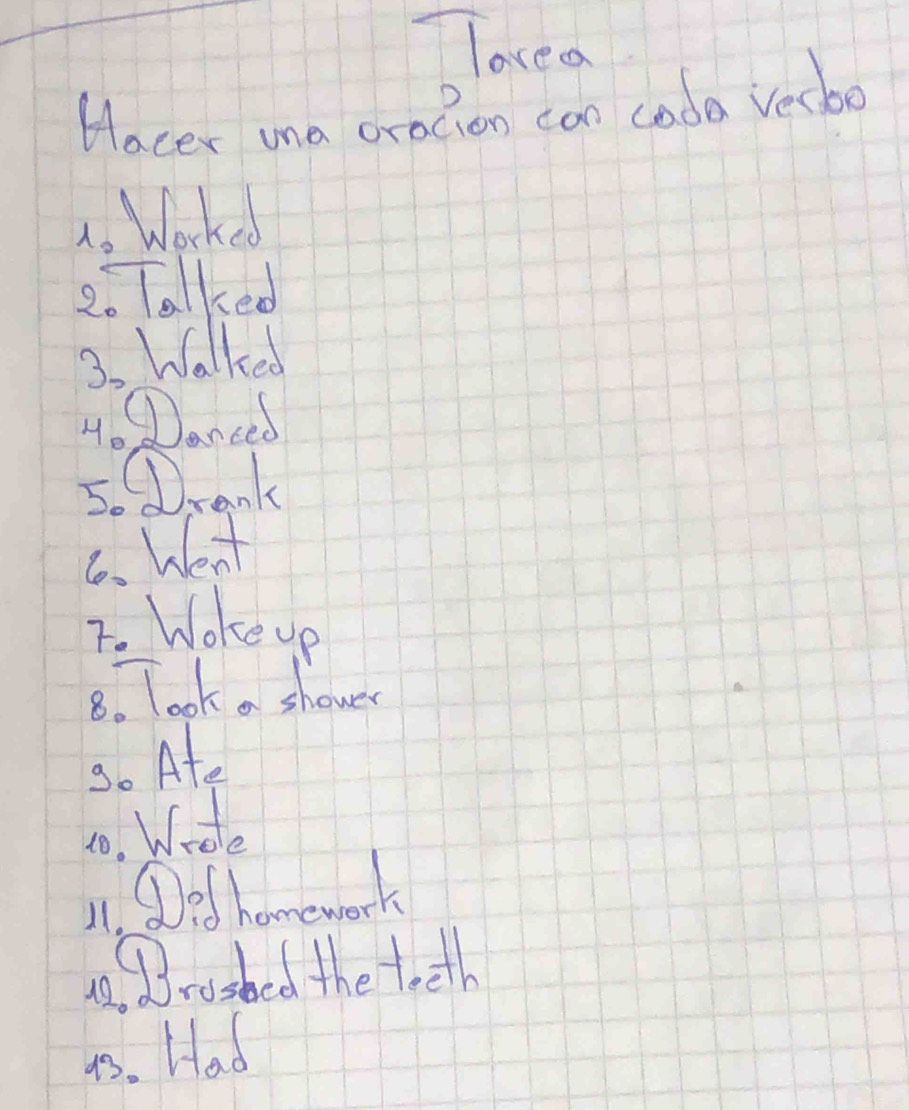 Tarea
Hacer una oración con cada verbo
1. Worked
2. Talked
3. Walked
4. Danced
5. Drank
6. Went
7. Woke up
8. Took a shower
9. Ate
10. Wrote
11. Did homework
12. Brushed the teeth
13. Had